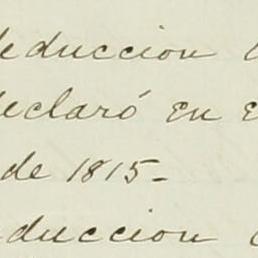 deduccion
declaró en e
de 1815-
deduccion